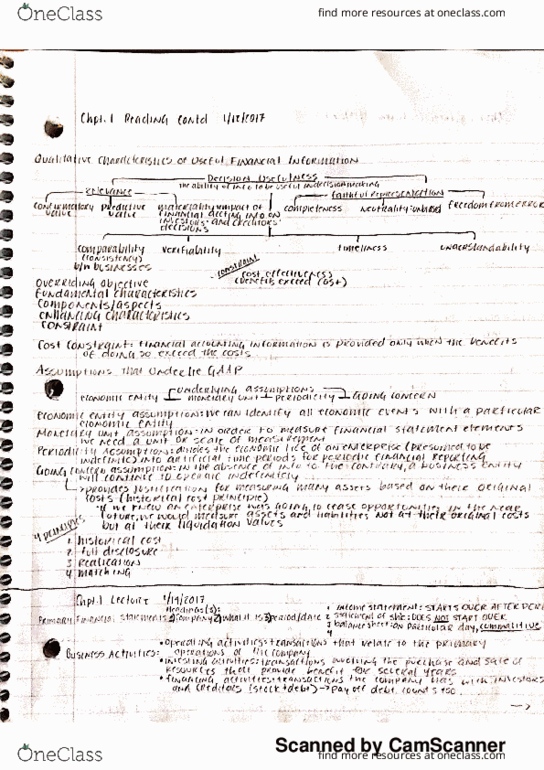 OneClass
find more resources at oneclass.com
Chpt. 1 Reading contd 1/18/2017
Qualitative Characteristics of Useful Financial Information
Decision Usefulness
the ability of info to be useful in decision making
relevance
faithful representation
confirmatory value
predictive value
materiality: impact of financial acctng info on investors' and creditors' decisions
completeness
neutrality: unbiased
freedom from error
comparability (consistency) b/n businesses
verifiability
timeliness
understandability
constraint
cost effectiveness (benefits exceed cost)
Overriding objective
Fundamental characteristics
Components/aspects
enhancing characteristics
constraint
Cost constraint: financial accounting information is provided only when the benefits
of doing so exceed the costs
Assumptions that underlie GAAP
underlying assumptions
economic entity monetary unit periodicity going concern
economic entity assumption: we can identify all economic events with a particular
economic entity
Monetary unit assumption: in order to measure financial statement elements
we need a unit or scale of measurement
Periodicity assumption: divides the economic life of an enterprise (presumed to be
indefinite) into artificial time periods for periodic financial reporting
Going concern assumption: in the absence of info to the contrary, a business entity
will continue to operate indefinitely
provides justification for measuring many assets based on their original
costs (historical cost principle)
if we knew an enterprise was going to cease opportunities in the near
future, we would measure assets and liabilities not at their original costs
but at their liquidation values
4 principles
1 historical cost
2 full disclosure
3 realication
4 matching
Chpt. 1 Lecture 1/19/2017
Heading(s):
Primary Financial statements ① company ② what it is ③ period/date
• income statement: STARTS OVER AFTER PERI
2 statement of SHE: DOES NOT START OVER
3 balance sheet: on particular day, cumulitive
4
Business Activities:
• operating activities: transactions that relate to the primary
operations of the company
• investing activities: transactions involving the purchase and sale of
resources that provide benefit for several years
• financing activities: transactions the company has with investors
and creditors (stock + debt) → pay off debt counts too
OneClass
Scanned by CamScanner
find more resources at oneclass.com